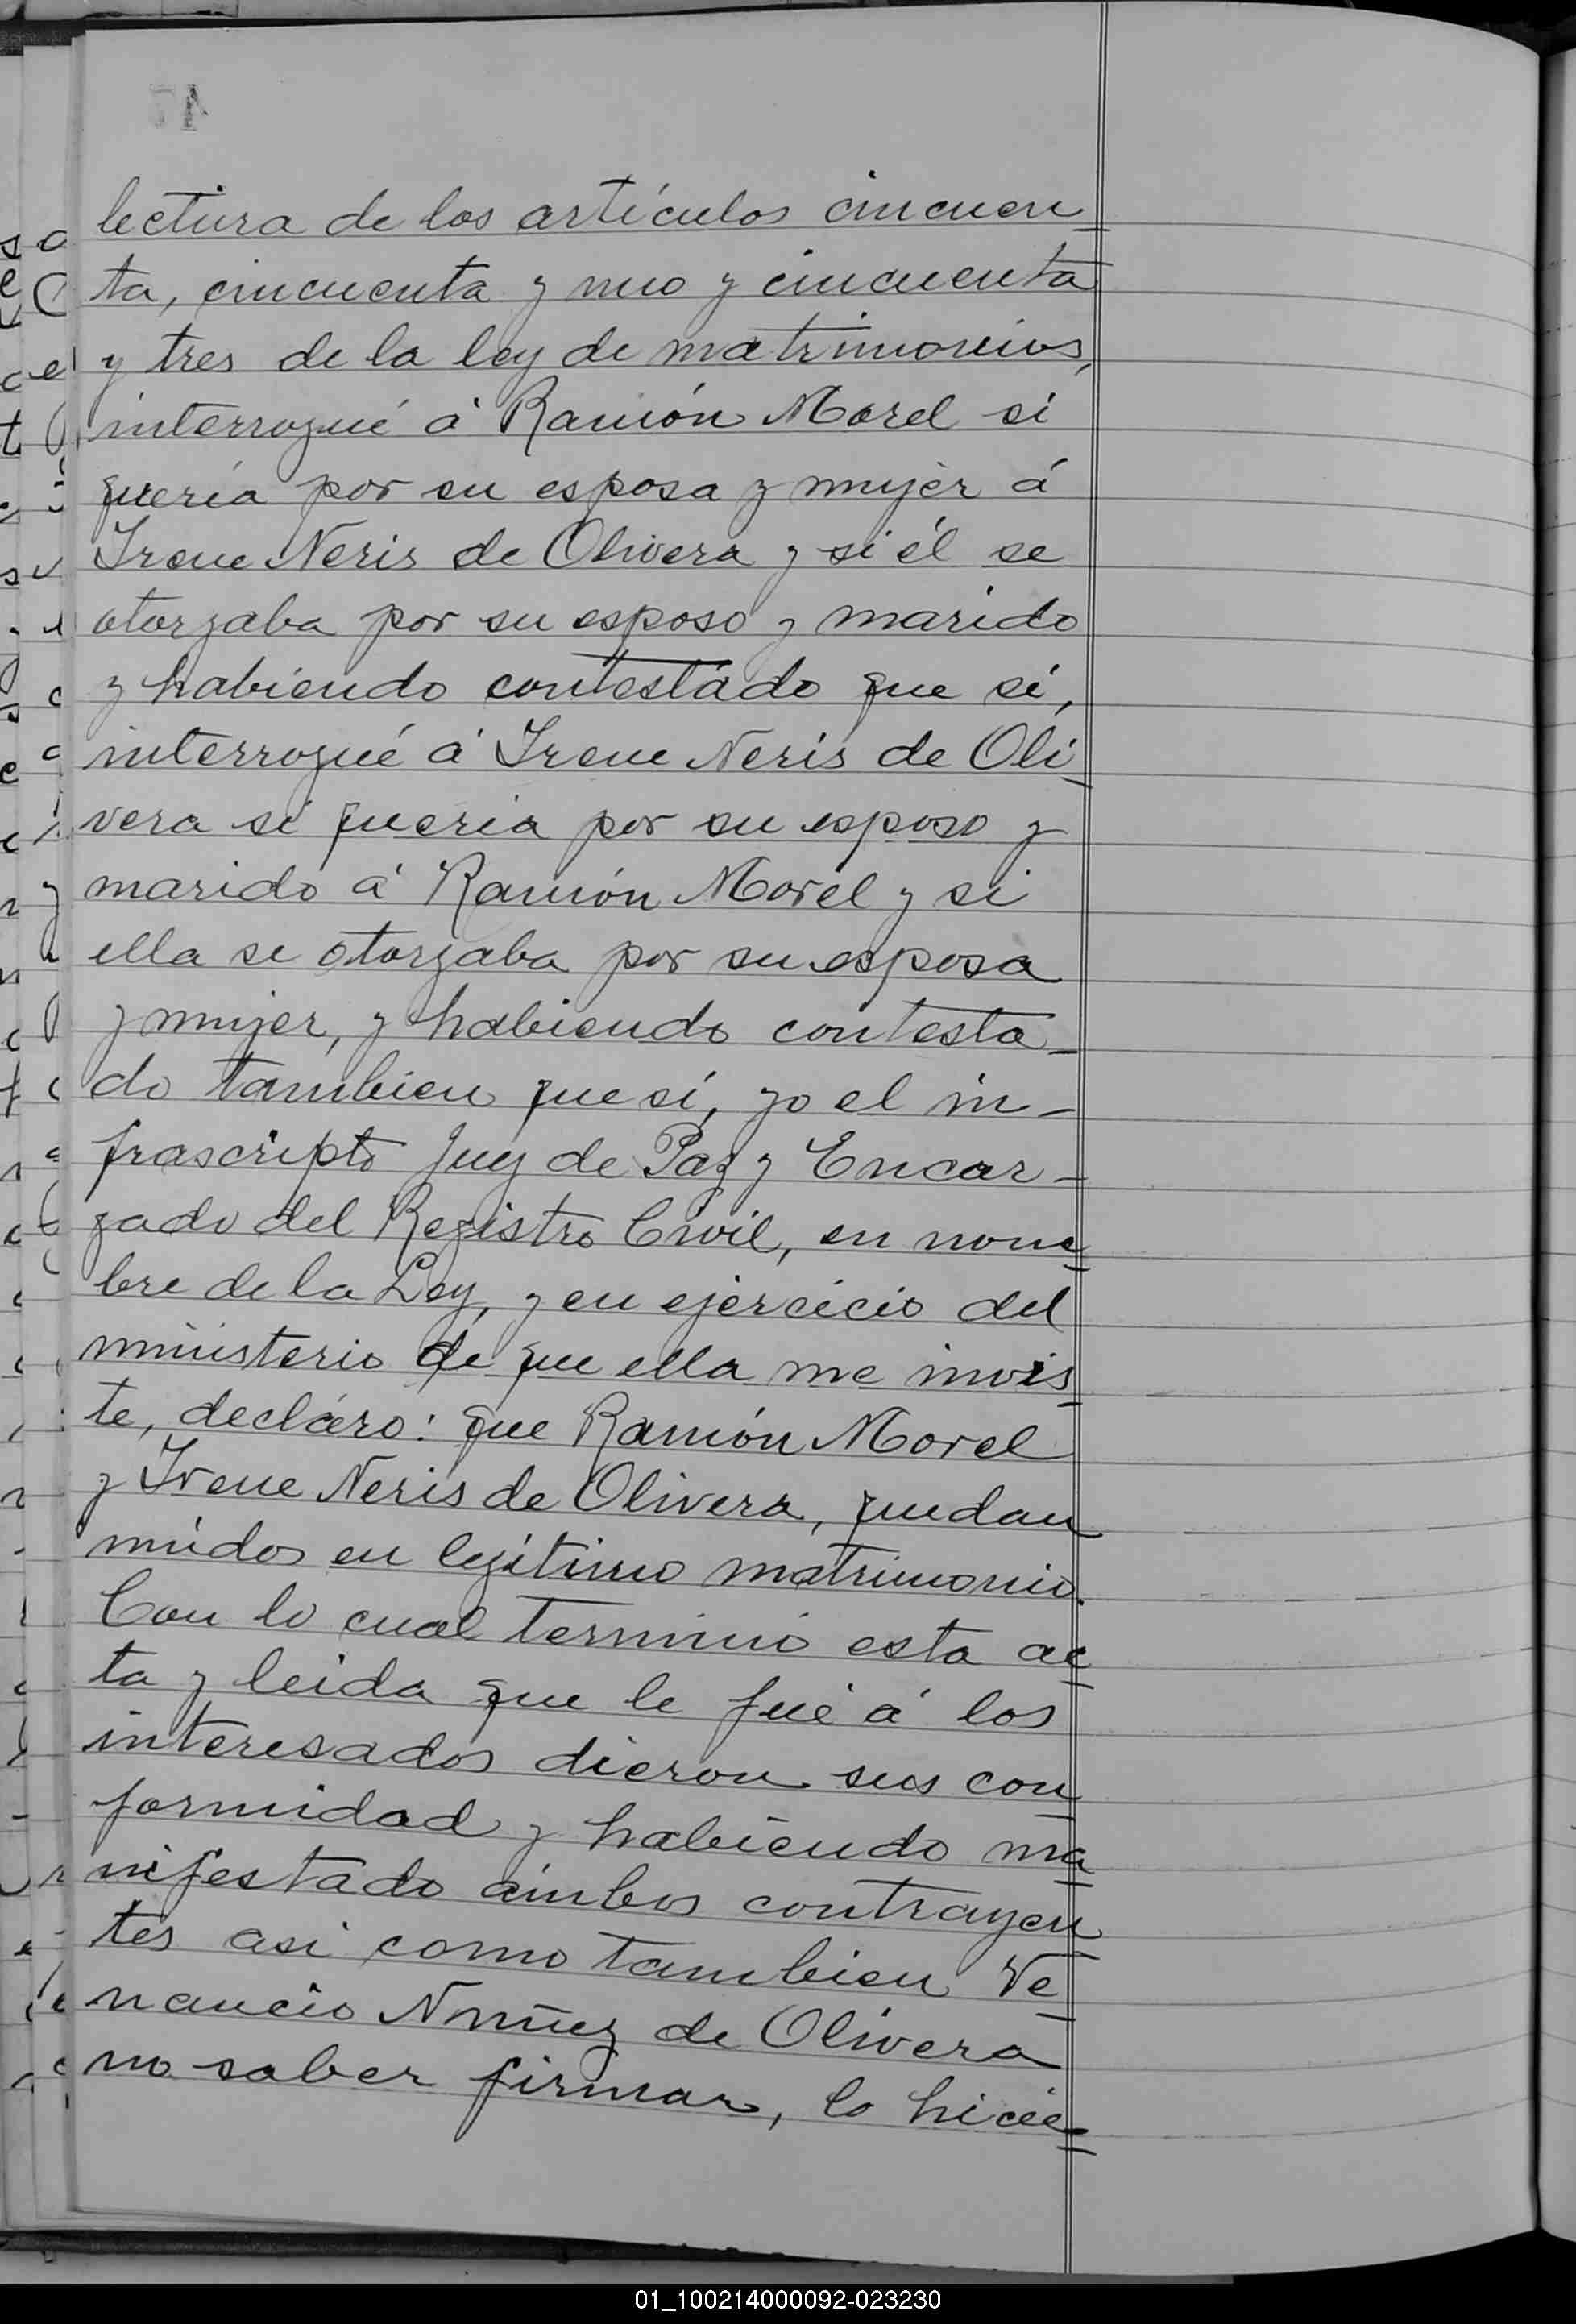 47
lectura de los artículos cincuen
ta, cincuenta y uno y cincuenta
y tres de la ley de matrimonios,
interrogué á Ramón Morel si
quería por su esposa y mujer á
Irene Neris de Olivera y si él se
otorgaba por su esposo y marido
y habiendo contestado que si,
interrogué á Irene Neris de Oli
vera si queria por su esposo y
marido á Ramón Morel y si
ella se otorgaba por su esposa
y mujer, y habiendo contesta_
do tambien que sí, yo el in_
frascripto Juez de Paz y Encar_
gado del Registro Civil, en nom
bre de la Ley, y en ejercicio del
ministerio de que ella me invis
te, decláro: que Ramón Morel
y Irene Neris de Olivera, quedan
unidos en legítimo matrimonio.
Con lo cual terminó esta ac
ta y leida que le fué á los
interesados dieron sus con
formidad y habiendo ma
nifestado ámbos contrayen
tes asi como tambien Ve
nancio Nuñez de Olivera
no saber firmar, lo hicie
01_100214000092-023230